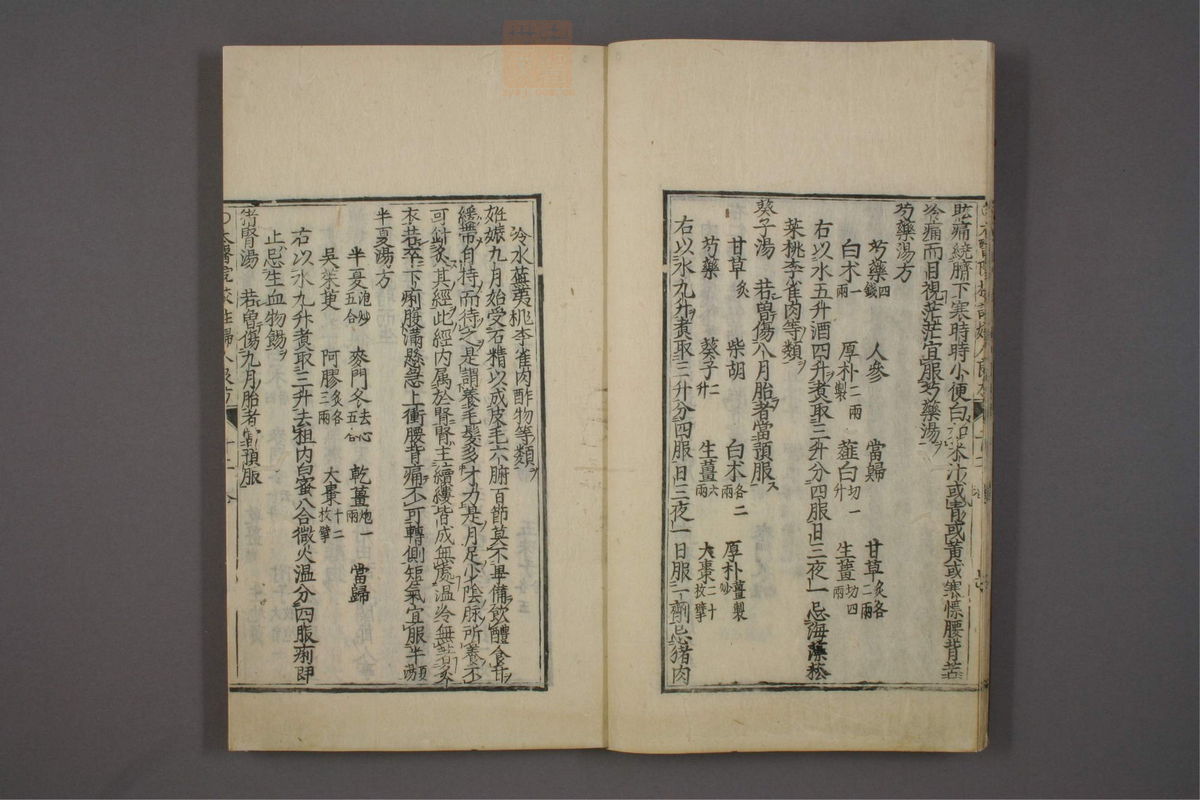 眩痛繞臍下寒時時小便白如米汁或青或黃或寒慄腰背苦
冷痛而目視茫茫宜服芍藥湯
芍藥湯方
芍藥四錢 人參 當歸 甘草炙各二兩
白木一兩 厚朴二兩製 薤白切一升 生薑切四兩
右以水五升酒四升煮取三升分四服日三夜一忌海藻菘
菜桃李雀肉等類
葵子湯 若曾傷八月胎者當預服
甘草炙 柴胡 白木各二兩 厚朴薑製炒
芍藥 葵子二升 生薑六兩 大棗二十枚擘
右以水九升煮取三升分四服日三夜一日服一劑忌猪肉
冷水蕪荑桃李雀肉酢物等類
妊娠九月始受石精以成皮毛六腑百節莫不畢備飲醴食甘
緩帶自持而待之是謂養毛髮多才力是月足少陰脉所養不
可針灸其經此經內属於腎腎主續縷皆成無處温冷無著炙
衣若卒下痢腹滿懸急上衝腰背痛不可轉側短氣宜服半夏湯
半夏湯方
半夏泡炒五合 麥門冬去心五合 乾薑炮一兩 當歸
吳茱萸 阿膠炙各三兩 大棗十二枚擘
右以水九升煮取三升去租內白蜜八合微火温分四服痢即
止忌生血物餳
猪腎湯 若曾傷九月胎者當預服